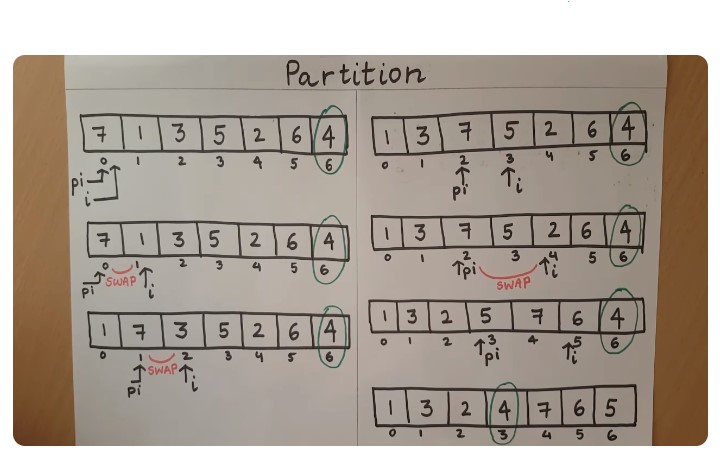 Partition
7 1 3 5 2 6 4
0 1 2 3 4 5 6
pi
i
7 1 3 5 2 6 4
0 1 2 3 4 5 6
pi SWAP i
1 7 3 5 2 6 4
0 1 2 3 4 5 6
pi SWAP i
1 3 7 5 2 6 4
0 1 2 3 4 5 6
pi i
1 3 7 5 2 6 4
0 1 2 3 4 5 6
pi SWAP i
1 3 2 5 7 6 4
0 1 2 3 4 5 6
pi i
1 3 2 4 7 6 5
0 1 2 3 4 5 6